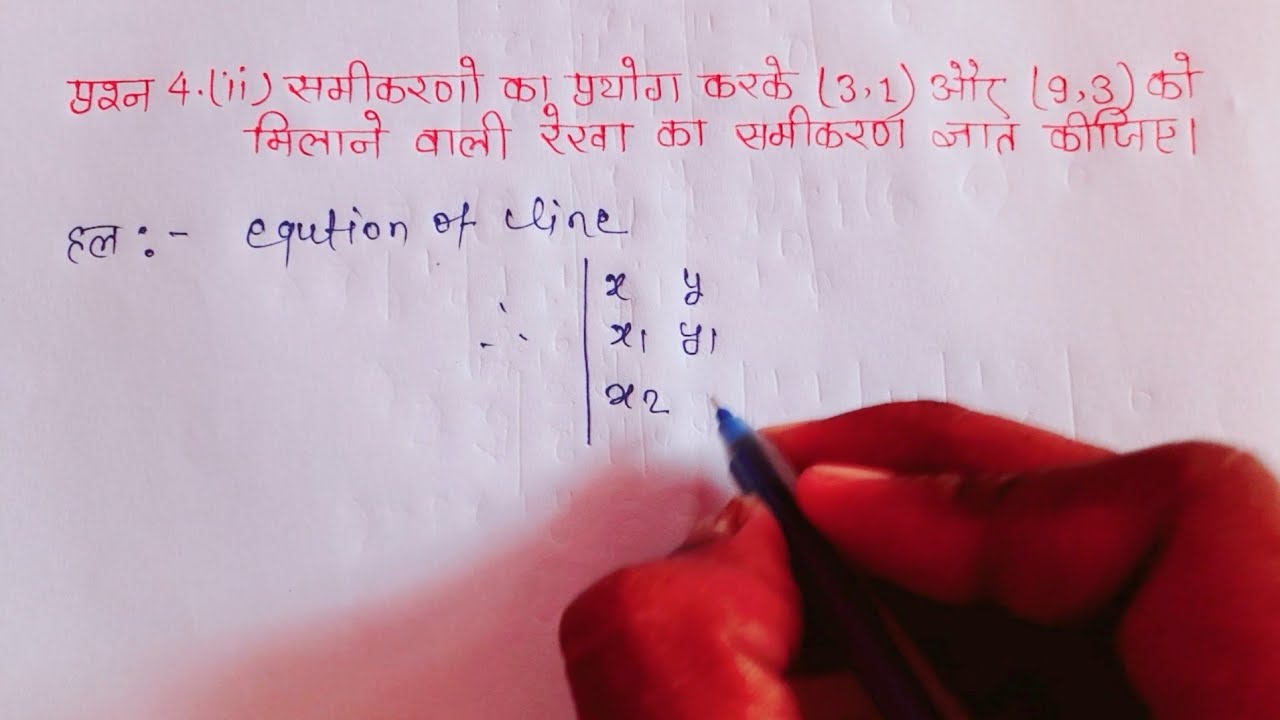 प्रश्न 4.(ii) समीकरणो का प्रयोग करके (3,1) और (9,3) को
मिलाने वाली रेखा का समीकरण ज्ञात कीजिए।
हल :- eqution of line
x y
∴ x1 y1
x2